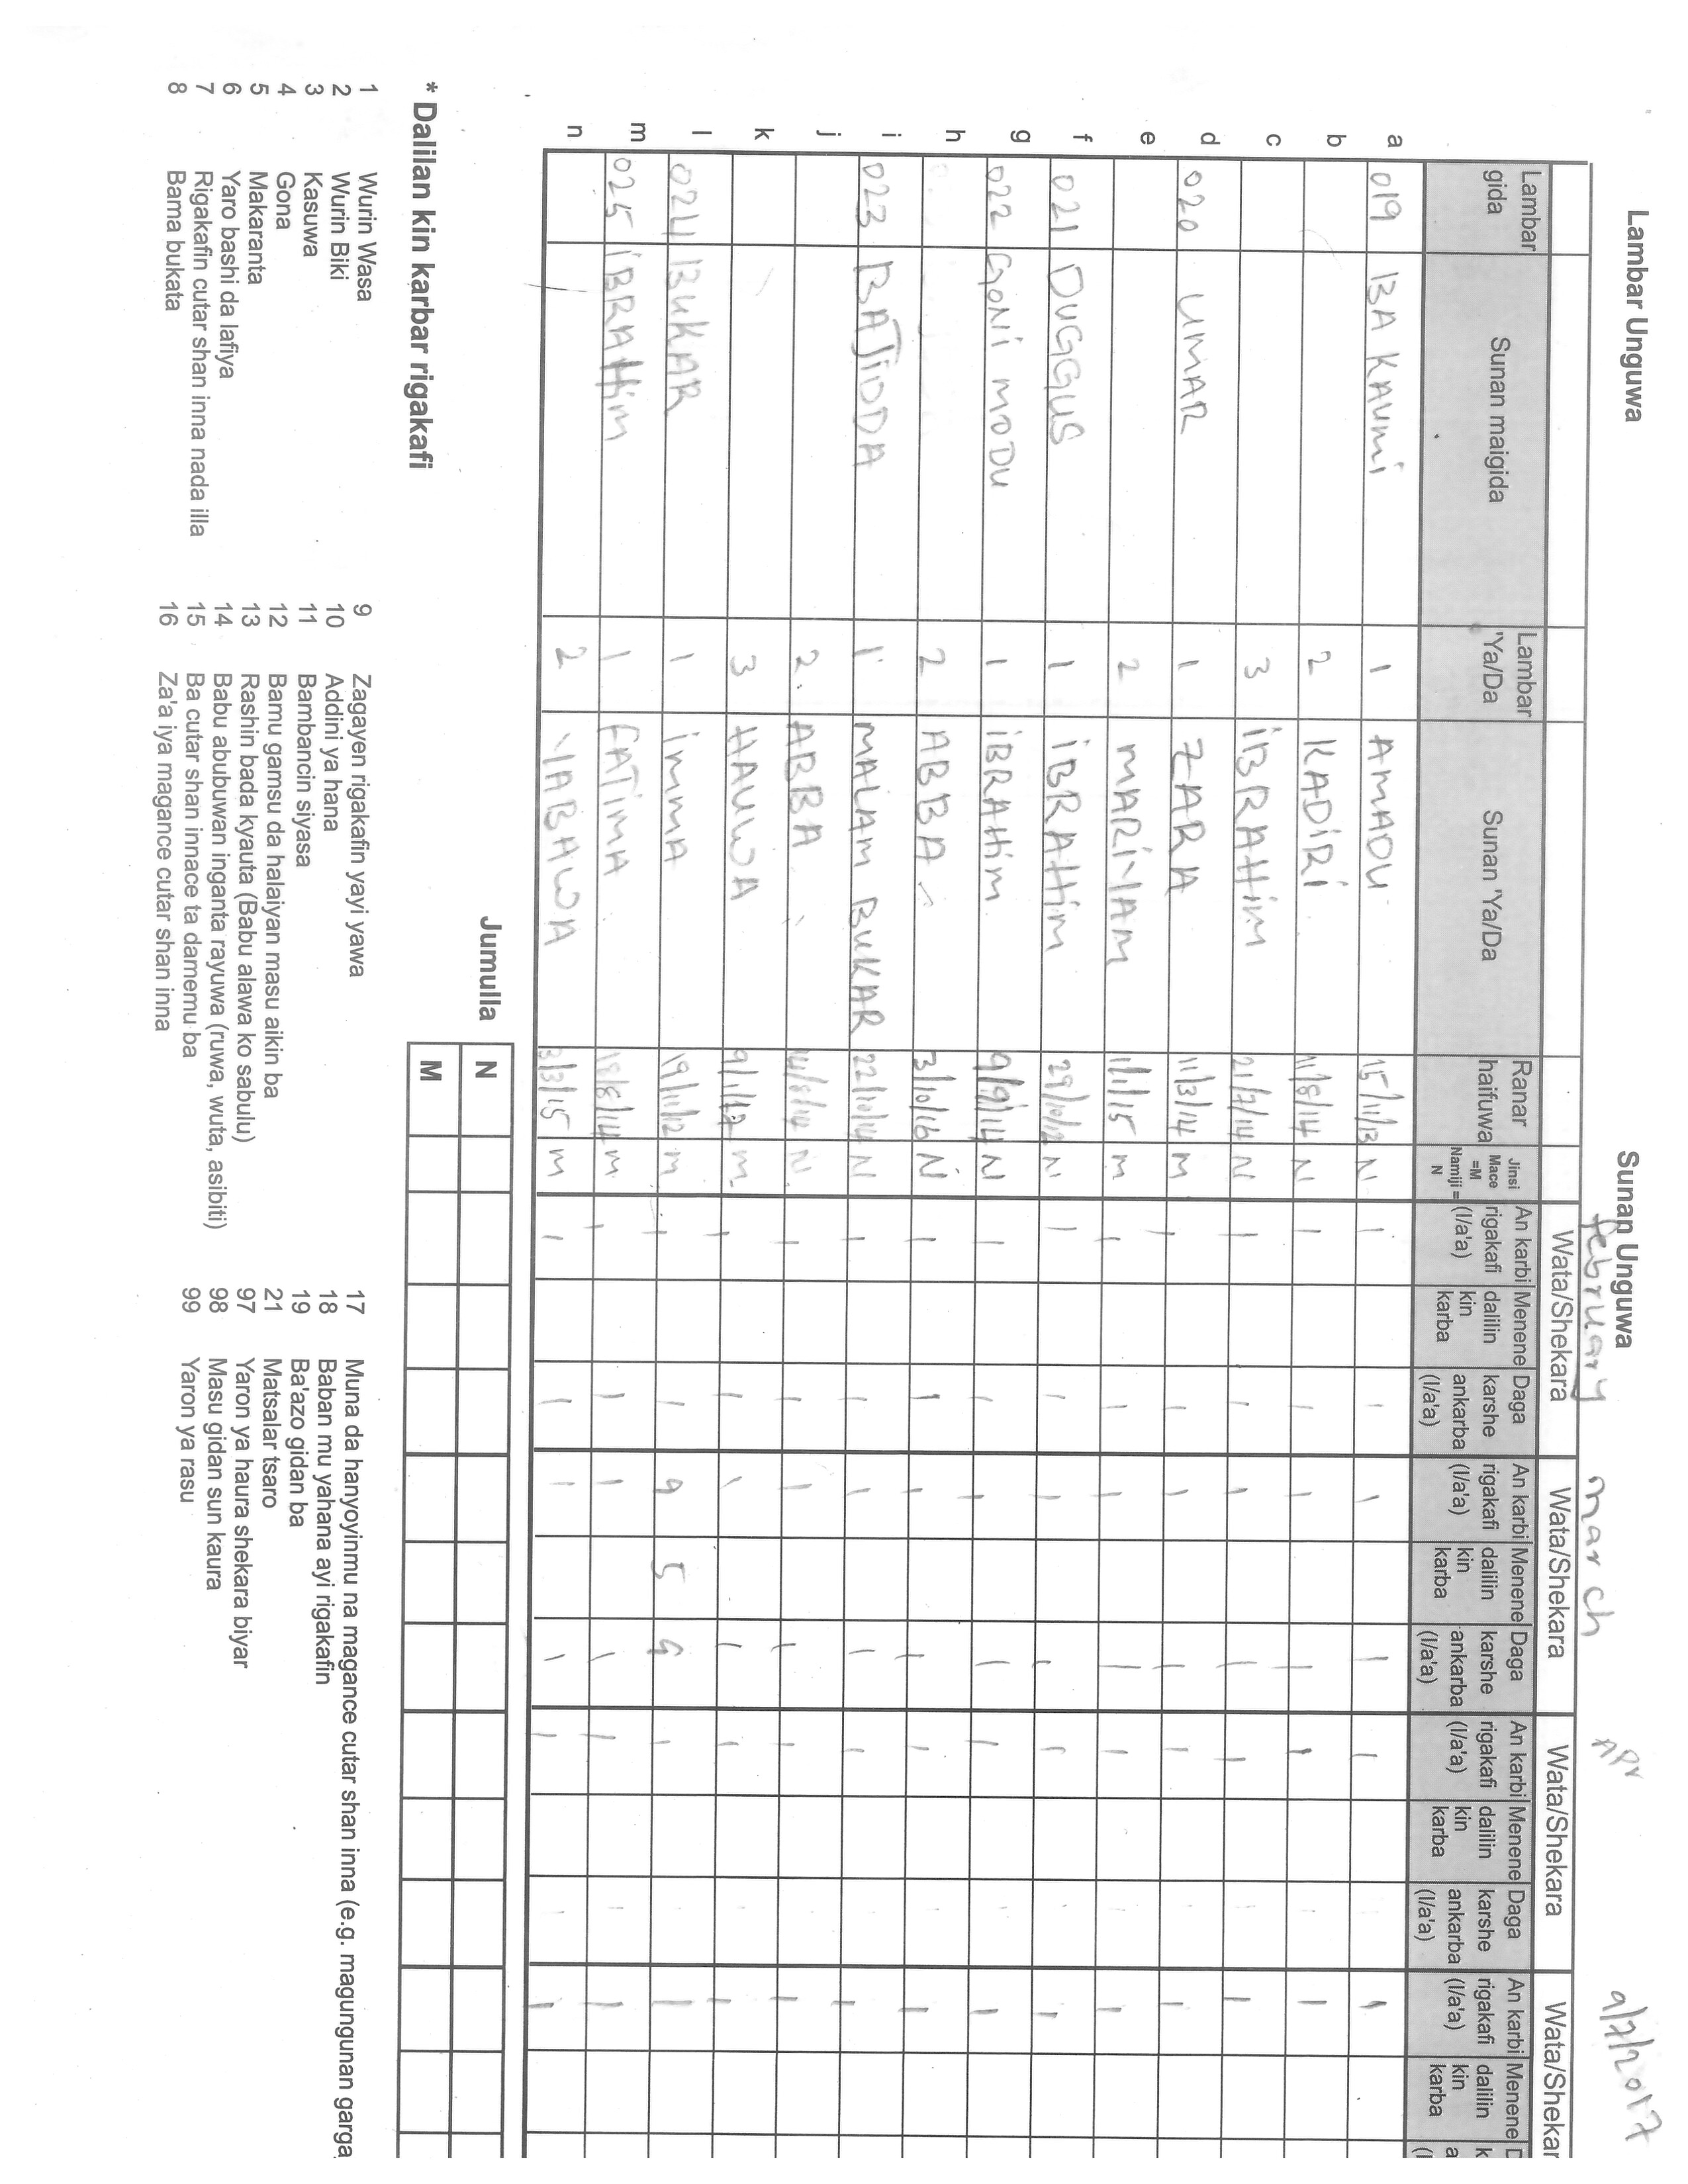 Lambar Unguwa Sunan Unguwa
february march Apr 9/7/2017
Wata/Shekara Wata/Shekara Wata/Shekara Wata/Shekar
Lambar gida Sunan maigida Lambar 'Ya/Da Sunan 'Ya/Da Ranar haifuwa Jinsi Mace =M Namiji = N An karbi rigakafi (I/a'a) Menene dalilin kin karba Daga karshe ankarba (I/a'a) An karbi rigakafi (I/a'a) Menene dalilin kin karba Daga karshe ankarba (I/a'a) An karbi rigakafi (I/a'a) Menene dalilin kin karba Daga karshe ankarba (I/a'a) An karbi rigakafi (I/a'a) Menene dalilin kin karba
a 019 BA KAUMi 1 AMADU 15/11/13 N I I I I I I
b 2 KADiRi 11/8/14 N I I I I I
c 3 iBRAHiM 21/7/14 N I I I I I I
d 020 UMAR 1 ZARA 11/3/14 M I I I I I I
e 2 MARiYAM 1/1/15 M I I I I I I
f 021 DUGGUS 1 iBRAHiM 29/10/12 N I I I I I I
g 022 GONi MODU 1 iBRAHiM 9/9/14 N I I I I I I
h 2 ABBA 3/10/16 N I I I I I I
i 023 BAJiDDA 1 MALAM BUKAR 22/10/14 N I I I I I I
j 2. ABBA N I I I I I I
k 3 HAUWA 9/1/17 M I I I I I I
l 024 BUKAR 1 iMMA 19/11/12 M I I 9 5 9 I I
m 025 iBRAHiM 1 FATiMA 18/8/14 M I I I I I I
n 2 YABAWA 3/3/15 M I I I I I I
Jumulla N
M
* Dalilan kin karbar rigakafi
1 Wurin Wasa
2 Wurin Biki
3 Kasuwa
4 Gona
5 Makaranta
6 Yaro bashi da lafiya
7 Rigakafin cutar shan inna nada illa
8 Bama bukata
9 Zagayen rigakafin yayi yawa
10 Addini ya hana
11 Bambancin siyasa
12 Bamu gamsu da halaiyan masu aikin ba
13 Rashin bada kyauta (Babu alawa ko sabulu)
14 Babu abubuwan inganta rayuwa (ruwa, wuta, asibiti)
15 Ba cutar shan innace ta damemu ba
16 Za'a iya magance cutar shan inna
17 Muna da hanyoyinmu na magance cutar shan inna (e.g. magungunan garga
18 Baban mu yahana ayi rigakafin
19 Ba'azo gidan ba
21 Matsalar tsaro
97 Yaron ya haura shekara biyar
98 Masu gidan sun kaura
99 Yaron ya rasu